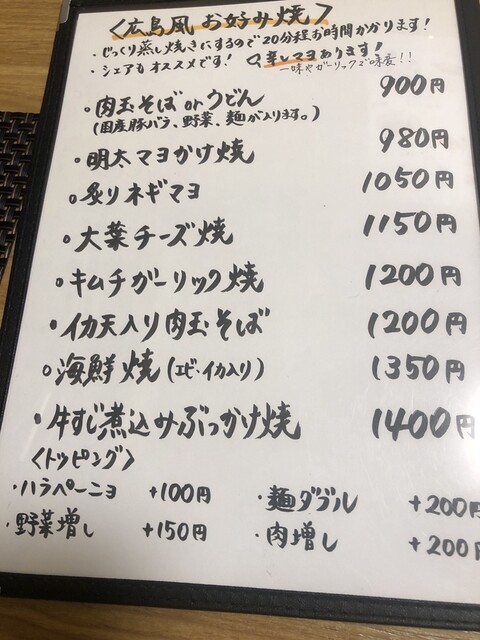 〈広島風 お好み焼〉
・じっくり蒸し焼きにするので20分程お時間かかります!
・シェアもオススメです! 辛しマヨあります!
一味やガーリックで味変!!
・肉玉そばorうどん 900円
(国産豚バラ、野菜、麺が入ります。)
・明太マヨかけ焼 980円
・炙りネギマヨ 1050円
・大葉チーズ焼 1150円
・キムチガーリック焼 1200円
・イカ天入り肉玉そば 1200円
・海鮮焼(エビ・イカ入り) 1350円
・牛すじ煮込みぶっかけ焼 1400円
〈トッピング〉
・ハラペーニョ +100円 ・麺ダブル +200円
・野菜増し +150円 ・肉増し +200円